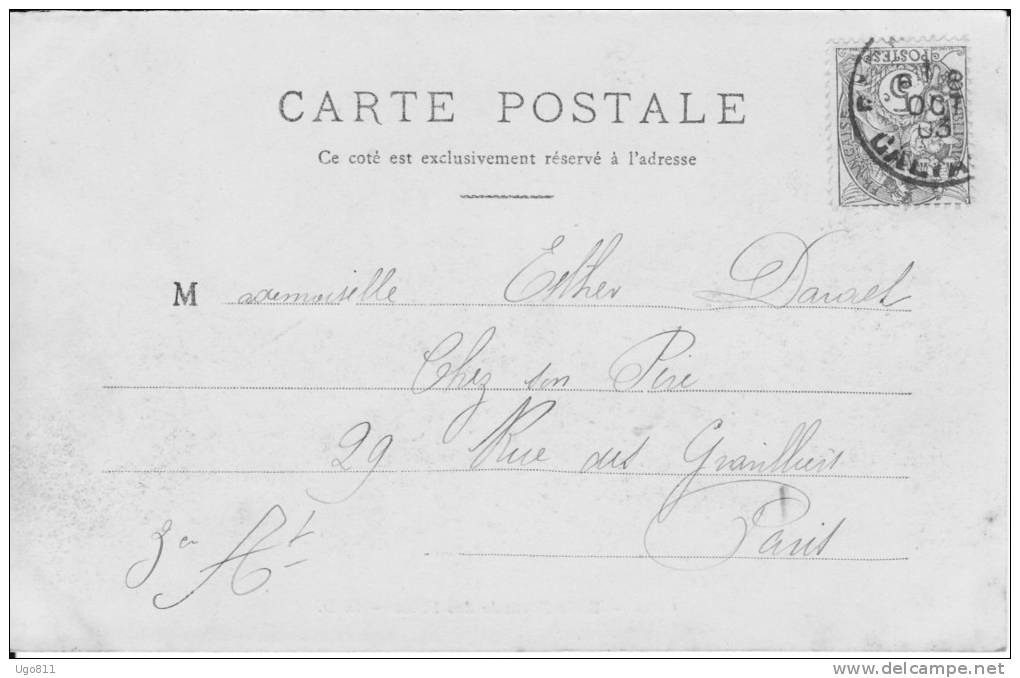 CARTE POSTALE
Ce coté est exclusivement réservé à l'adresse
POSTES
OC
03
Mademoiselle Esther
Chez son Père
29 Rue des
Paris
3e At
Ugo811
www.delcampe.net